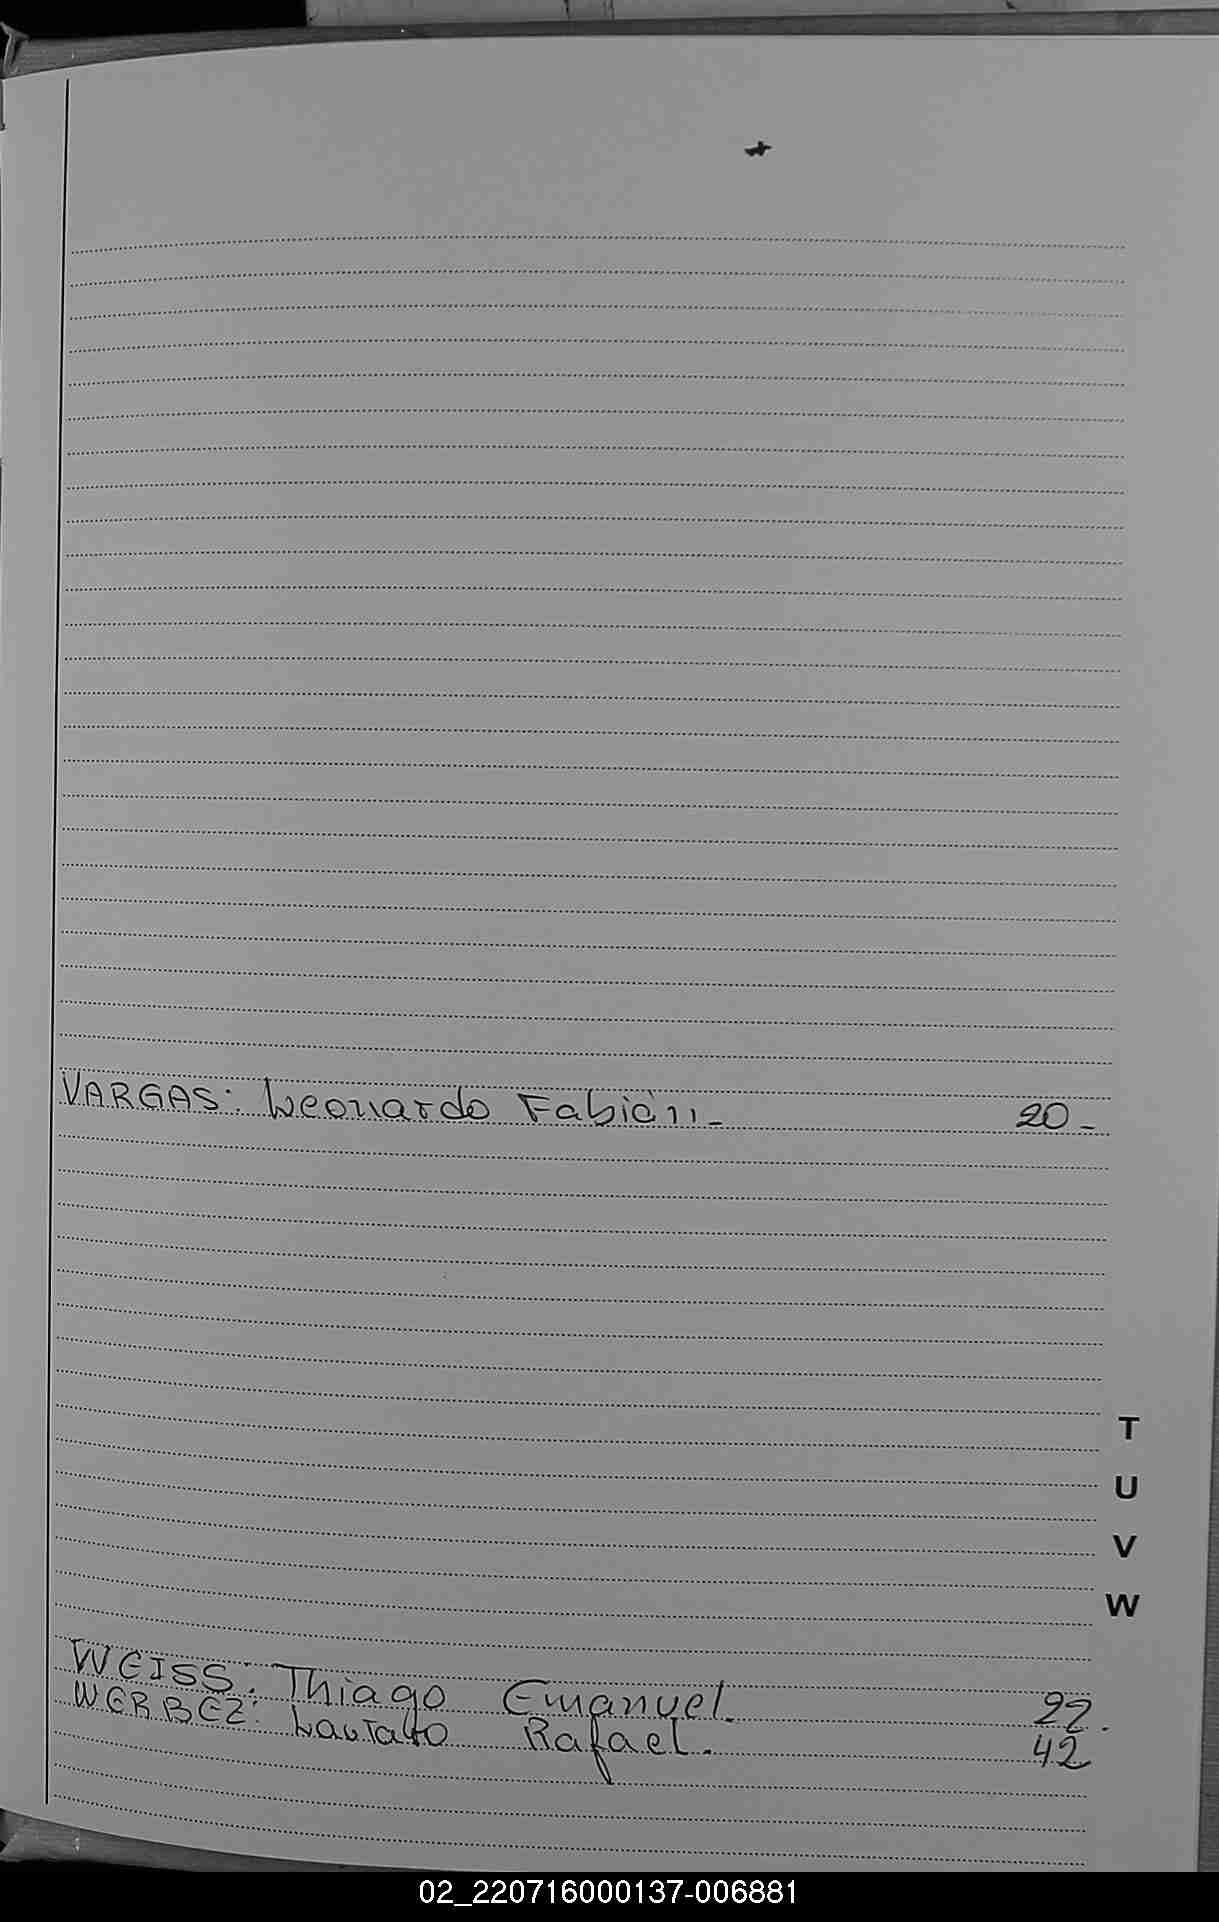 VARGAS: Leonardo Fabián._ 20_
T
U
V
W
WEISS: Thiago Emanuel. 22.
WERBEZ: Lautaro Rafael. 42
02_220716000137-006881